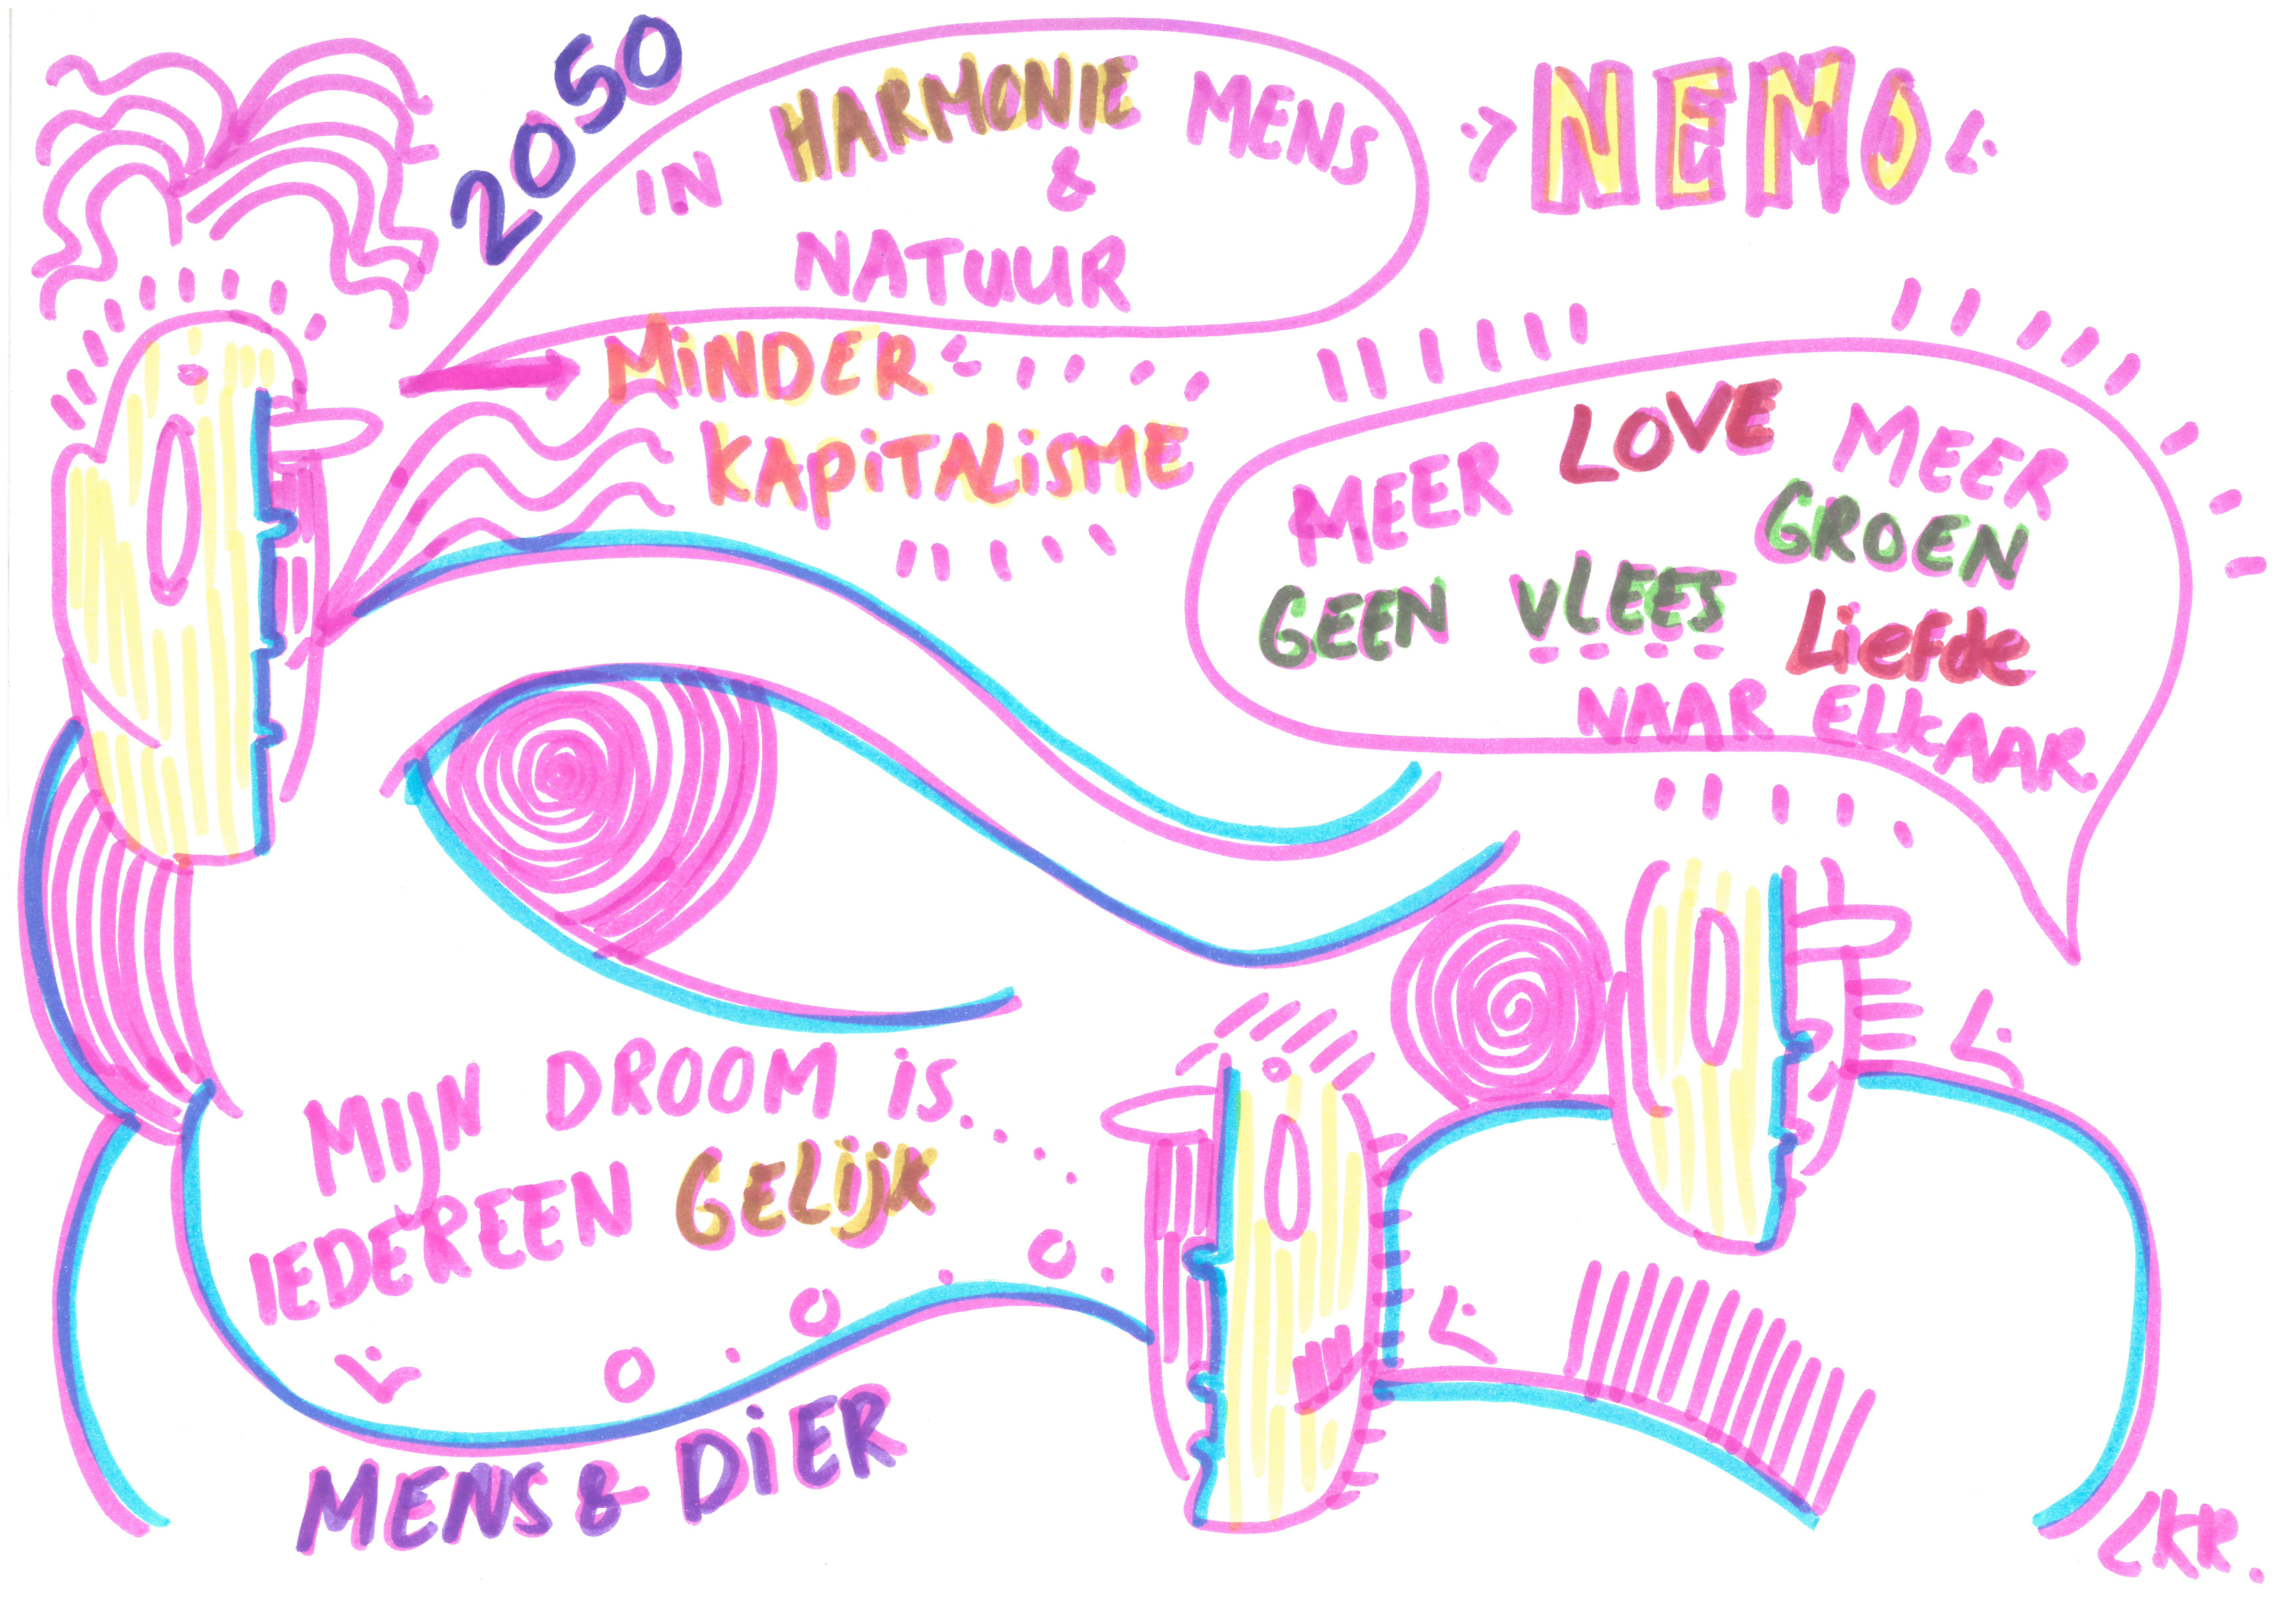 2050
IN HARMONIE MENS
&
NATUUR
NEMO
MINDER
KAPITALISME
MEER LOVE MEER
GROEN
GEEN VLEES
Liefde
NAAR ELKAAR
MIJN DROOM is...
IEDEREEN GELIJK
MENS & DIER
LKR.